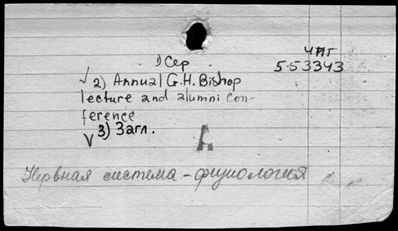 1) Сер
чпг
5-53343
√ 2) Annual G.H. Bishop
lecture and alumni con-
ference
√ 3) Загл.
A
Нервная система - физиология